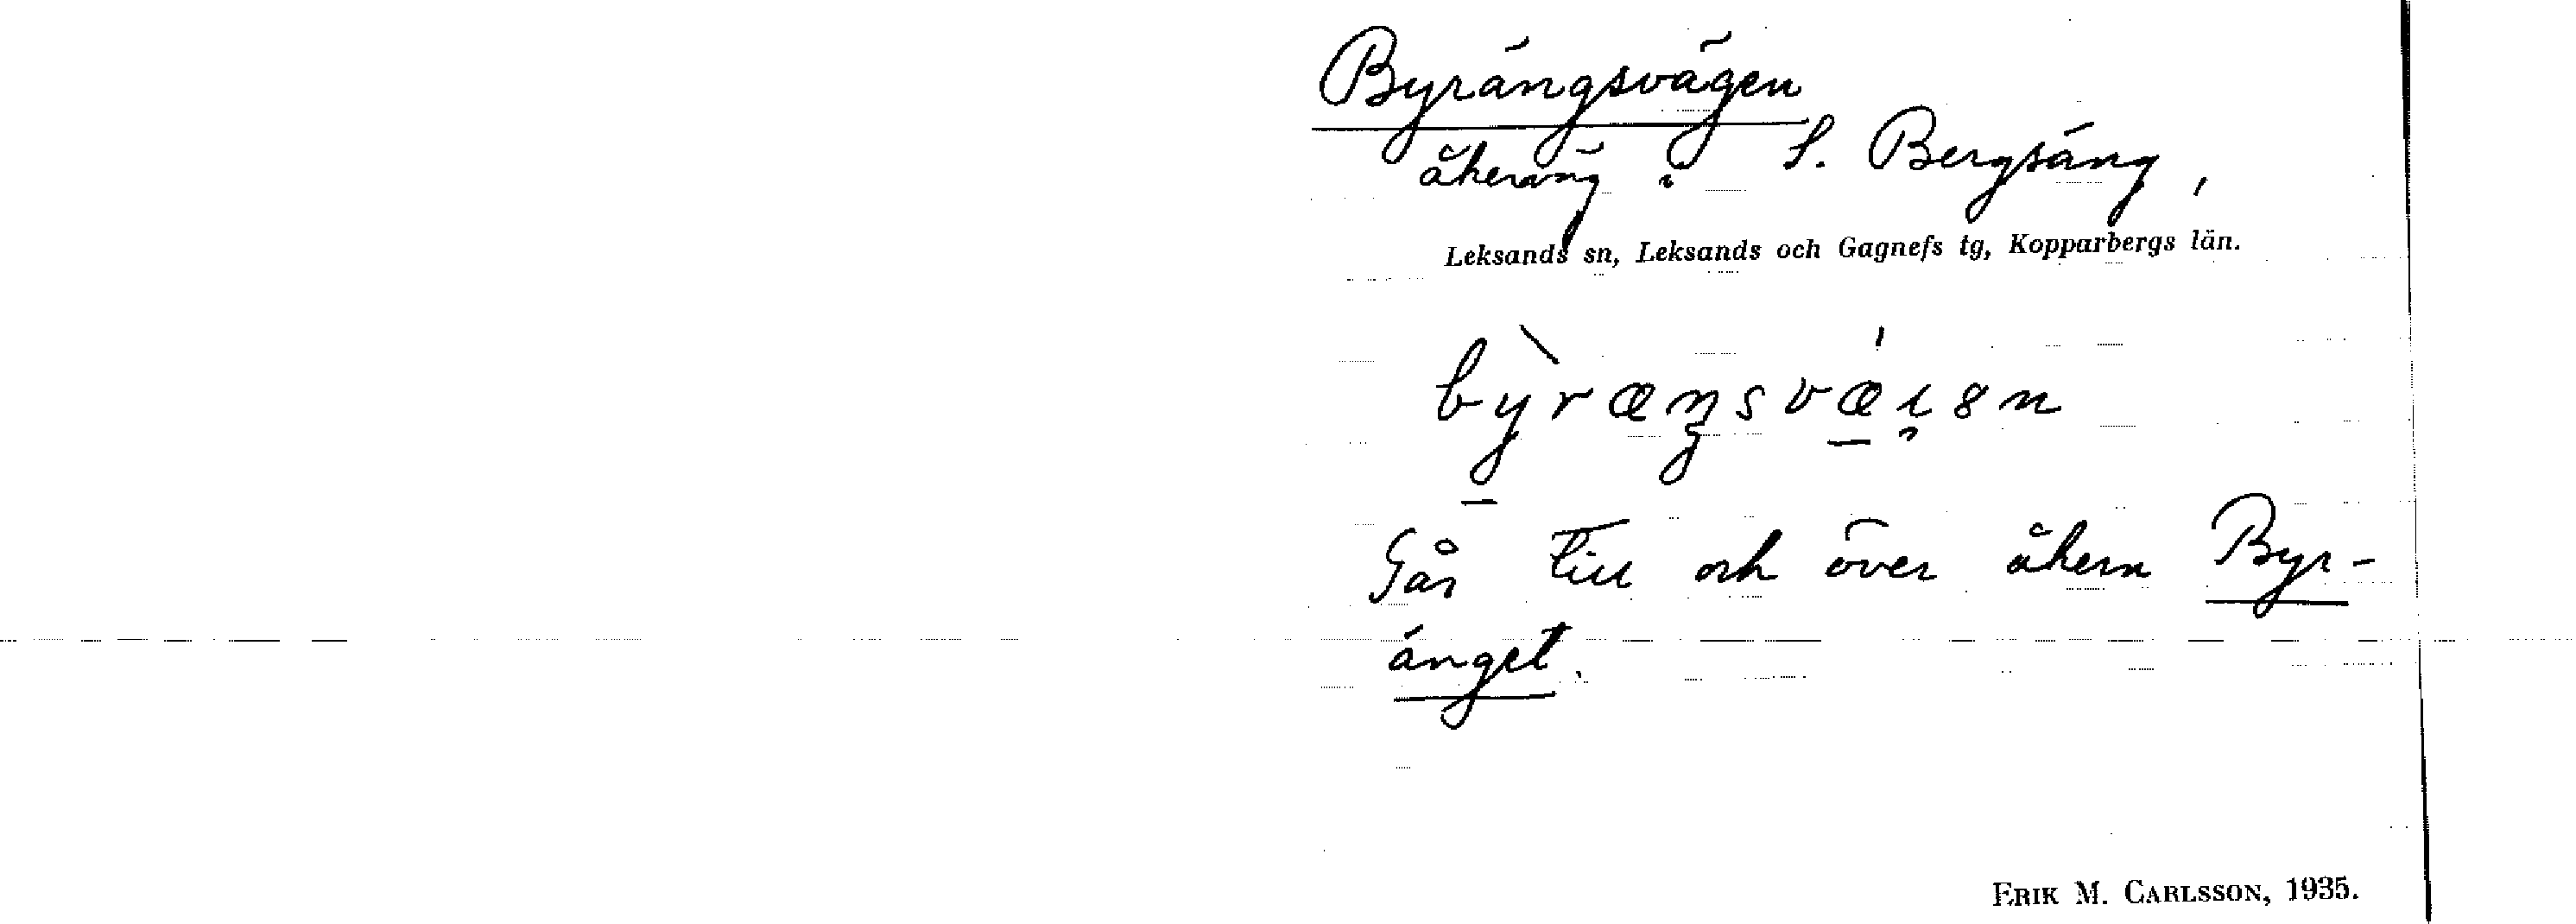 Byrängsvägen
åkerväg i S. Bergsäng,
Leksands sn, Leksands och Gagnefs tg, Kopparbergs län.
Går till och över åkern Byr-
änget.
ERIK M. CARLSSON, 1935.